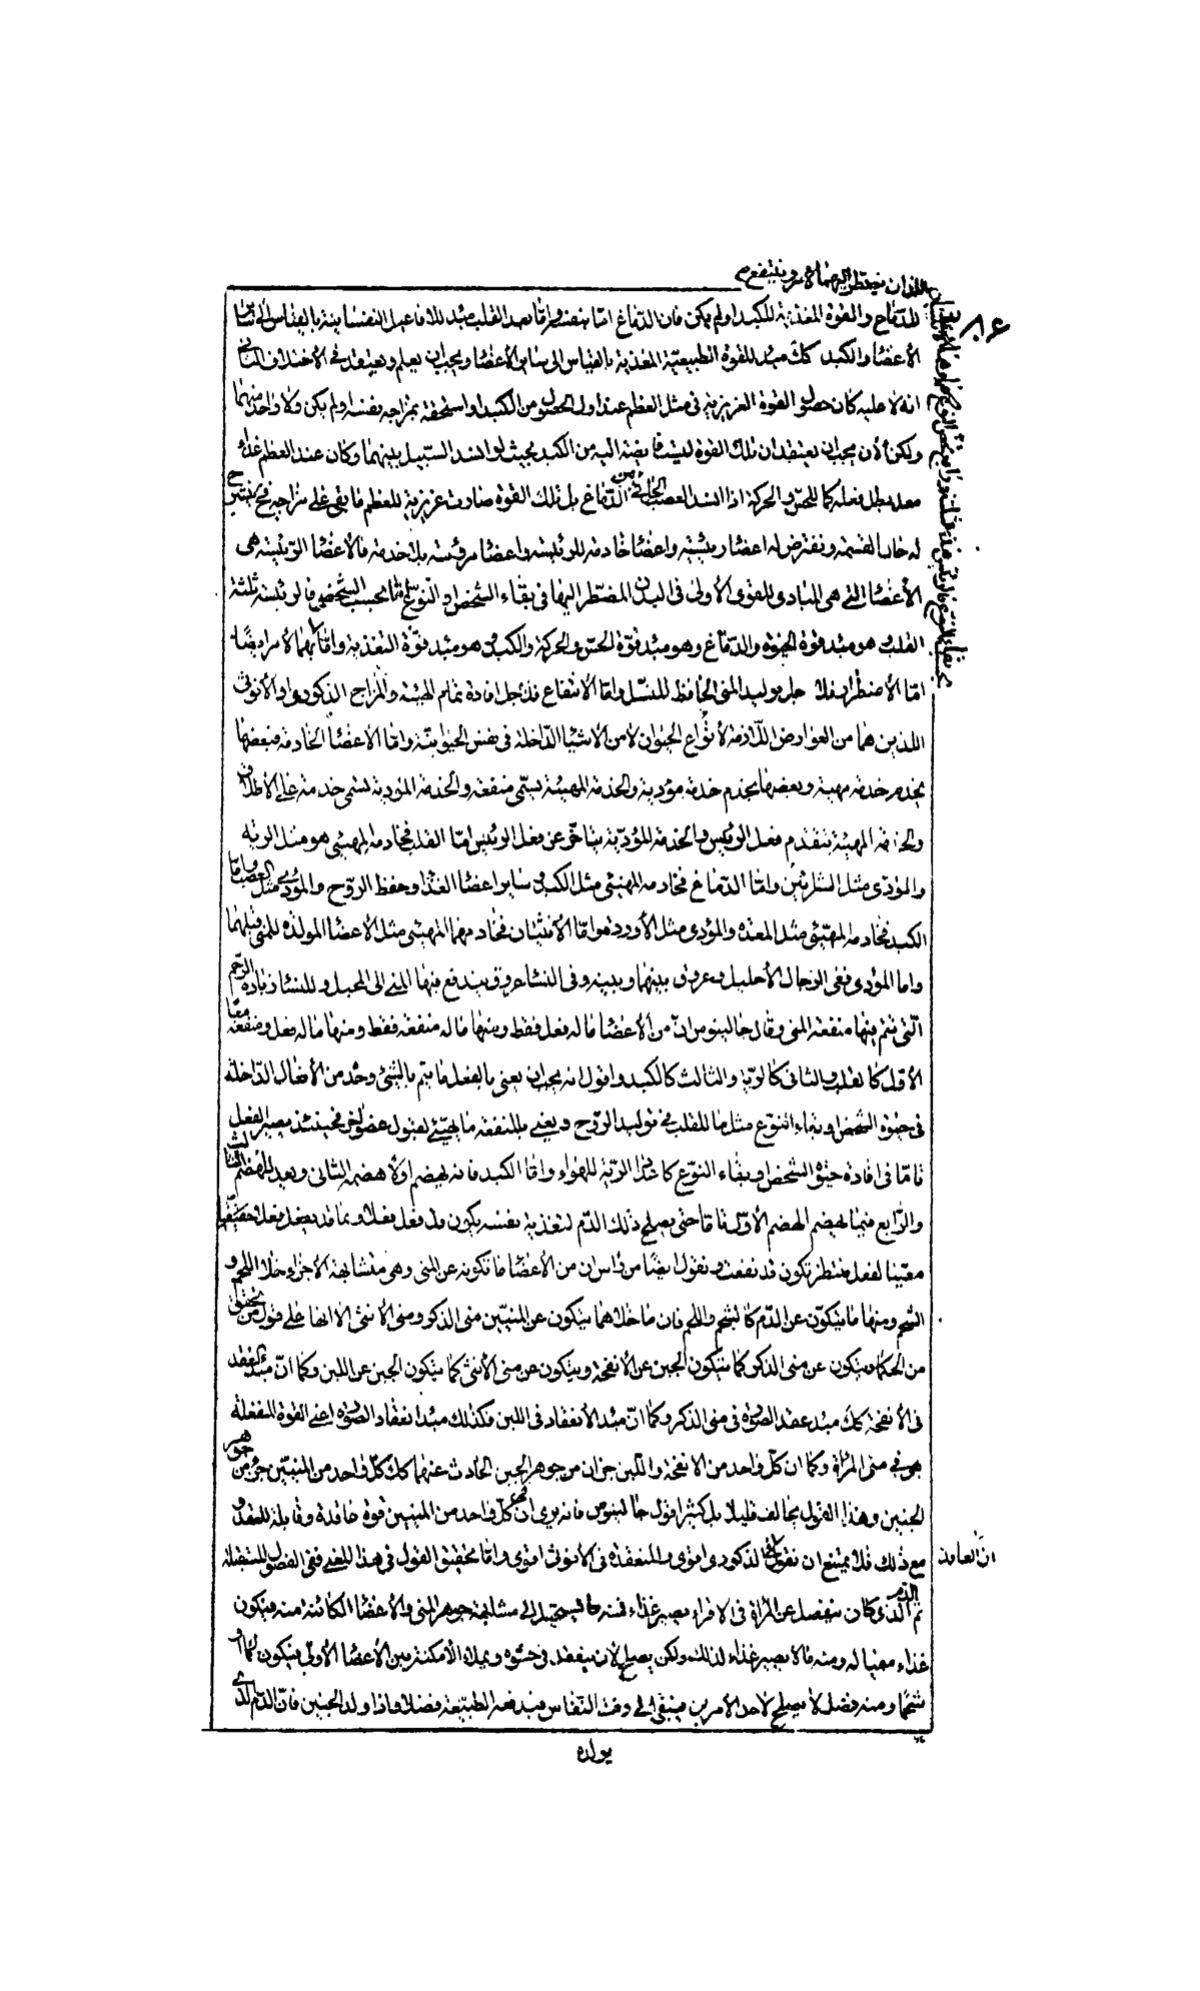 ٨٦
للدماغ والقوة المغذية للكبد او لم يكن فان الدماغ اما بنفسه واما بعد القلب مبدء للافاعيل النفسانية بالقياس الى سائر
الأعضا والكبد كك مبدء للقوة الطبيعية المغذية بالقياس الى سایر الأعضا ويجب ان يعلم ويعتقد فى الأختلاف الثانى
انه لا عليه كان حصول القوة الغريزية فى مثل العظم عند اول الحصول من الكبد او استحقه بمزاجه بنفسه او لم يكن ولا واحد منهما
ولكن ألان يجب ان يعتقد ان تلك القوة ليست فايضة اليه من الكبد بحيث لو انسد السبيل بينهما وكان عند العظم غذاء
معد بطل فعله كما للحس والحركة اذا انسد العصب الجائى من الدماغ بل تلك القوة صارت غريزية للعظم ما بقى على مزاجه فح ينشرح
له حال القسمة ونفترض له اعضا رئيسية واعضا خادمة للرئيسة واعضا مرؤسة بلا خدمة فالاعضا الرئيسة هى
الأعضا التى هى المبادى للقوى الأولى فى البدن المضطر اليها فى بقاء الشخص او النوع اما بحسب الشخص فالرئيسة ثلثة
القلب وهو مبدء قوة الحيوة والدماغ وهو مبدء قوة الحس والحركة والكبد وهو مبدء قوة التغذية واما
اما الأضطرار فلا جل توليد المنى الحافظ للنسل واما الانتفاع فلاجل افادة تمام الهيئة والمزاج الذكورى او الأنوثى
اللذين هما من العوارض اللازمة لأنواع الحيوان لا من الاشيا الداخلة فى نفس الحيوانية واما الاعضا الخادمة فبعضها
يخدم خدمة مهيئة وبعضها يخدم خدمة مؤدية والخدمة المهيئة تسمى منفعة والخدمة المؤدية تسمى خدمة على الأطلاق
والخدمة المهيئة تتقدم فعل الرئيس والخدمة المؤدية تتاخر عن فعل الرئيس اما القلب فخادمه المهيئى هو مثل الرية
والمؤدى مثل الشرائين واما الدماغ فخادمه المهيئى مثل الكبد وسایر اعضا الغذا وحفظ الروح والمؤدى مثل العصب واما
الكبد فخادمه المهيئى مثل المعدة والمؤدى مثل الأوردة واما الأنثيان فخادمهما المهيئى مثل الأعضا المولدة للمنى قبلهما
واما المؤدى ففى الرجال الأحليل وعروق بينهما وبينه وفى النسا عروق يندفع فيها المنى الى المحبل وللنسا زيادة الرحم
التى تتم فيها منفعة المنى وقال جالينوس ان من الأعضا ما له فعل فقط ومنها ما له منفعة فقط ومنها ما له فعل ومنفعة معا
الأول كالقلب والثانى كالرية والثالث كالكبد واقول انه يجب ان يعنى بالفعل ما يتم بالشئ وحده من الأفعال الداخلة
فى حيوة الشخص او بقاء النوع مثل ما للقلب فى توليد الروح ويعنى بالمنفعة ما يهيئ لقبول عضو اخر فحينئذ يصير الفعل
تاما فى افادة حيوة الشخص او بقاء النوع كاعداد الرية للهواء واما الكبد فانه يهضم اولا هضمه الثانى ويعد للهضم الثالث
والرابع فيما يهضم الهضم الأول تاما حتى يصلح ذلك الدم لتغذية نفسه يكون قد فعل فعلا وبما قد يفعل فعلا
معينا لفعل منتظر تكون قد نفعت ونقول ايضا من رأس ان من الأعضا ما تكونه عن المنى وهى متشابهة الأجزا خلا اللحم و
الشحم ومنها ما يتكون عن الدم كالشحم واللحم فان ما خلاهما يتكون عن المنيين منى الذكر ومنى الأنثى الا انها على قول من تحقق
من الحكما يتكون عن منى الذكر كما يتكون الجبن عن الانفحة ويتكون عن منى الأنثى كما يتكون الجبن عن اللبن وكما ان مبدء العقد
فى الأنفحة كك مبدء عقد الصورة فى منى الذكر وكما ان مبدء الأنعقاد فى اللبن فكذلك مبدء انعقاد الصورة اعنى القوة المنفعلة
هو فى منى المرأة وكما ان كل واحد من الانفحة واللبن جزء من جوهر الجبن الحادث عنهما كك كل واحد من المنيين جزء من جوهر
الجنين وهذا القول يخالف قليلا بل كثيرا قول جالينوس فانه يرى ان فى كل واحد من المنيين قوة عاقدة وقابلة للعقد و
مع ذلك فلا يمتنع ان نقول ان الذكورى اقوى والمنعقدة فى الأنوثى اقوى واما تحقيق القول فى هذا المعنى ففى الفصول المستقبلة
ثم الدم الذى كان ينفصل عن المرأة فى الاقراء يصير غذاء فمنه ما يستحيل الى مشابهة جوهر المنى والأعضا الكائنة منه فيكون
غذاء منميا له ومنه ما لا يصير غذاء لذلك ولكن يصلح لأن ينعقد فى حشوه ويملاء الأمكنة من الأعضا الأولى فيكون لحما او
شحما ومنه فضل لا يصلح لأحد الأمرين فيبقى الى وقت النفاس فيدفعه الطبيعة فضلا واذا ولد الجنين فان الدم الذى
ان العاقدة
يولده